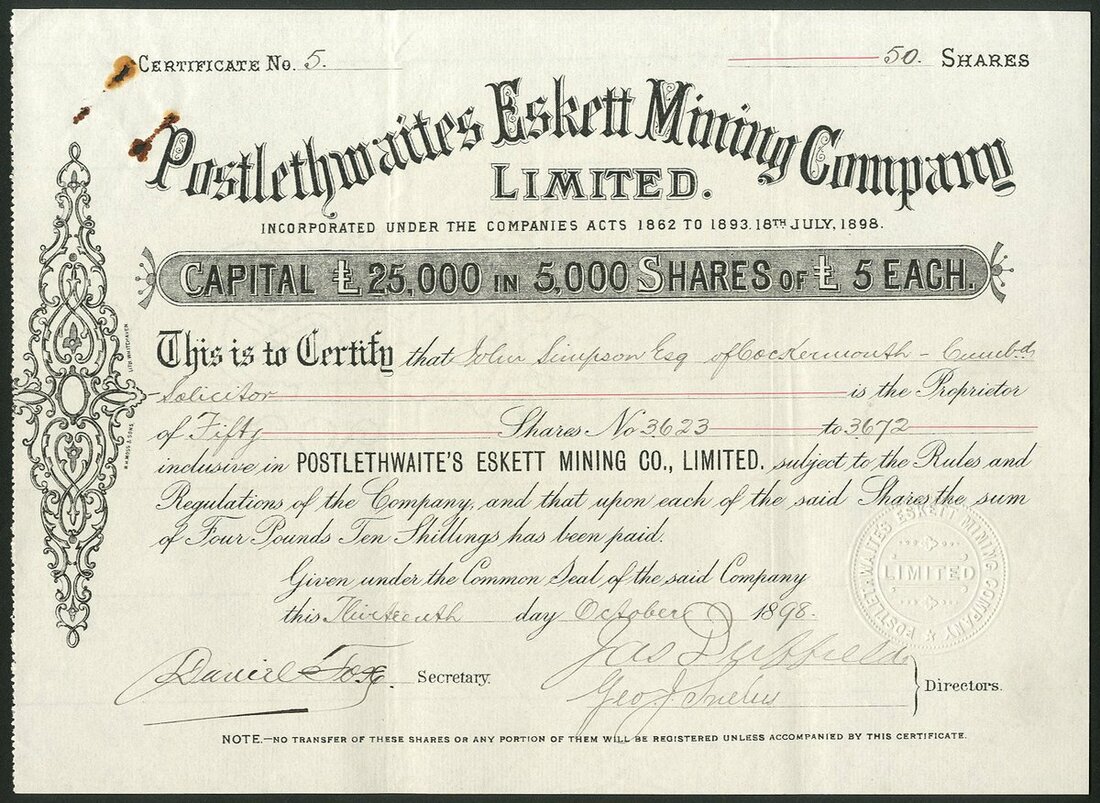 CERTIFICATE No. 5. 50. SHARES
Postlethwaites Eskett Mining Company
LIMITED.
INCORPORATED UNDER THE COMPANIES ACTS 1862 TO 1893. 18TH JULY, 1898.
CAPITAL £ 25,000 IN 5,000 SHARES OF £ 5 EACH.
This is to Certify that John Simpson Esq of Cockermouth - Cumbd
Solicitor is the Proprietor
of Fifty Shares No 3623 to 3672
inclusive in POSTLETHWAITE'S ESKETT MINING CO., LIMITED. subject to the Rules and
Regulations of the Company, and that upon each of the said Shares the sum
of Four Pounds Ten Shillings has been paid.
Given under the Common Seal of the said Company
this Thirteenth day October 1898.
POSTLETHWAITES ESKETT MINING COMPANY
LIMITED
Daniel Fox. Secretary.
Jas Duffield
Geo J Snelus
Directors.
NOTE.—NO TRANSFER OF THESE SHARES OR ANY PORTION OF THEM WILL BE REGISTERED UNLESS ACCOMPANIED BY THIS CERTIFICATE.
LITH WHITEHAVEN
& SONS